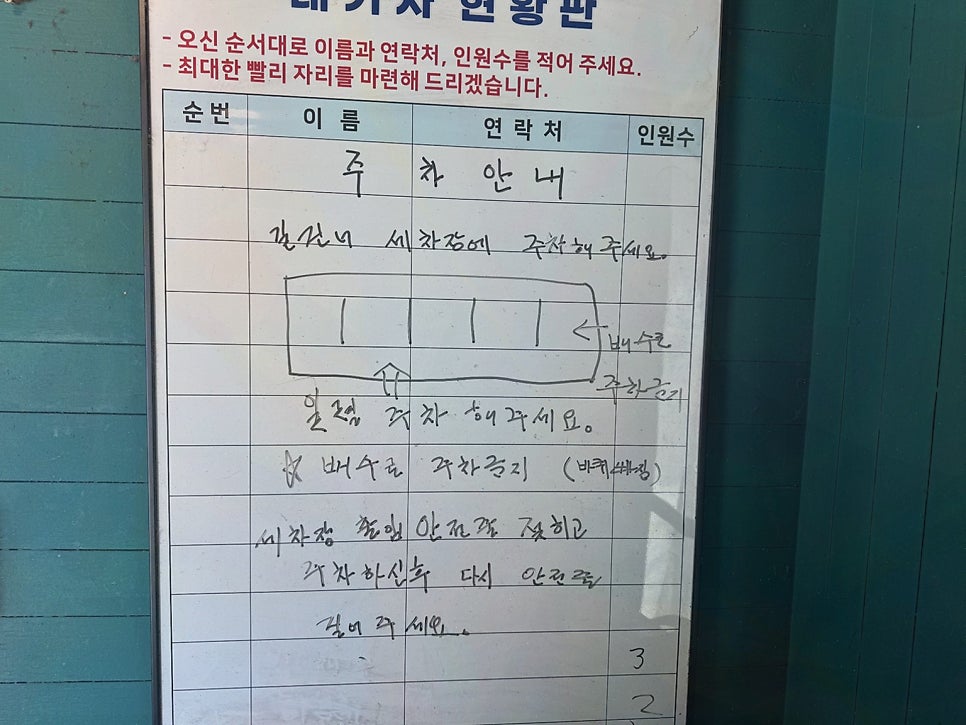 대기자 현황판
- 오신 순서대로 이름과 연락처, 인원수를 적어 주세요.
- 최대한 빨리 자리를 마련해 드리겠습니다.
순번 이름 연락처 인원수
주차 안내
길건너 세차장에 주차해 주세요.
배수로
주차금지
일렬 주차 해주세요.
☆ 배수로 주차금지 (바퀴빠짐)
세차장 출입 안전줄 젖히고
주차하신후 다시 안전줄
걸어 주세요.
3
2